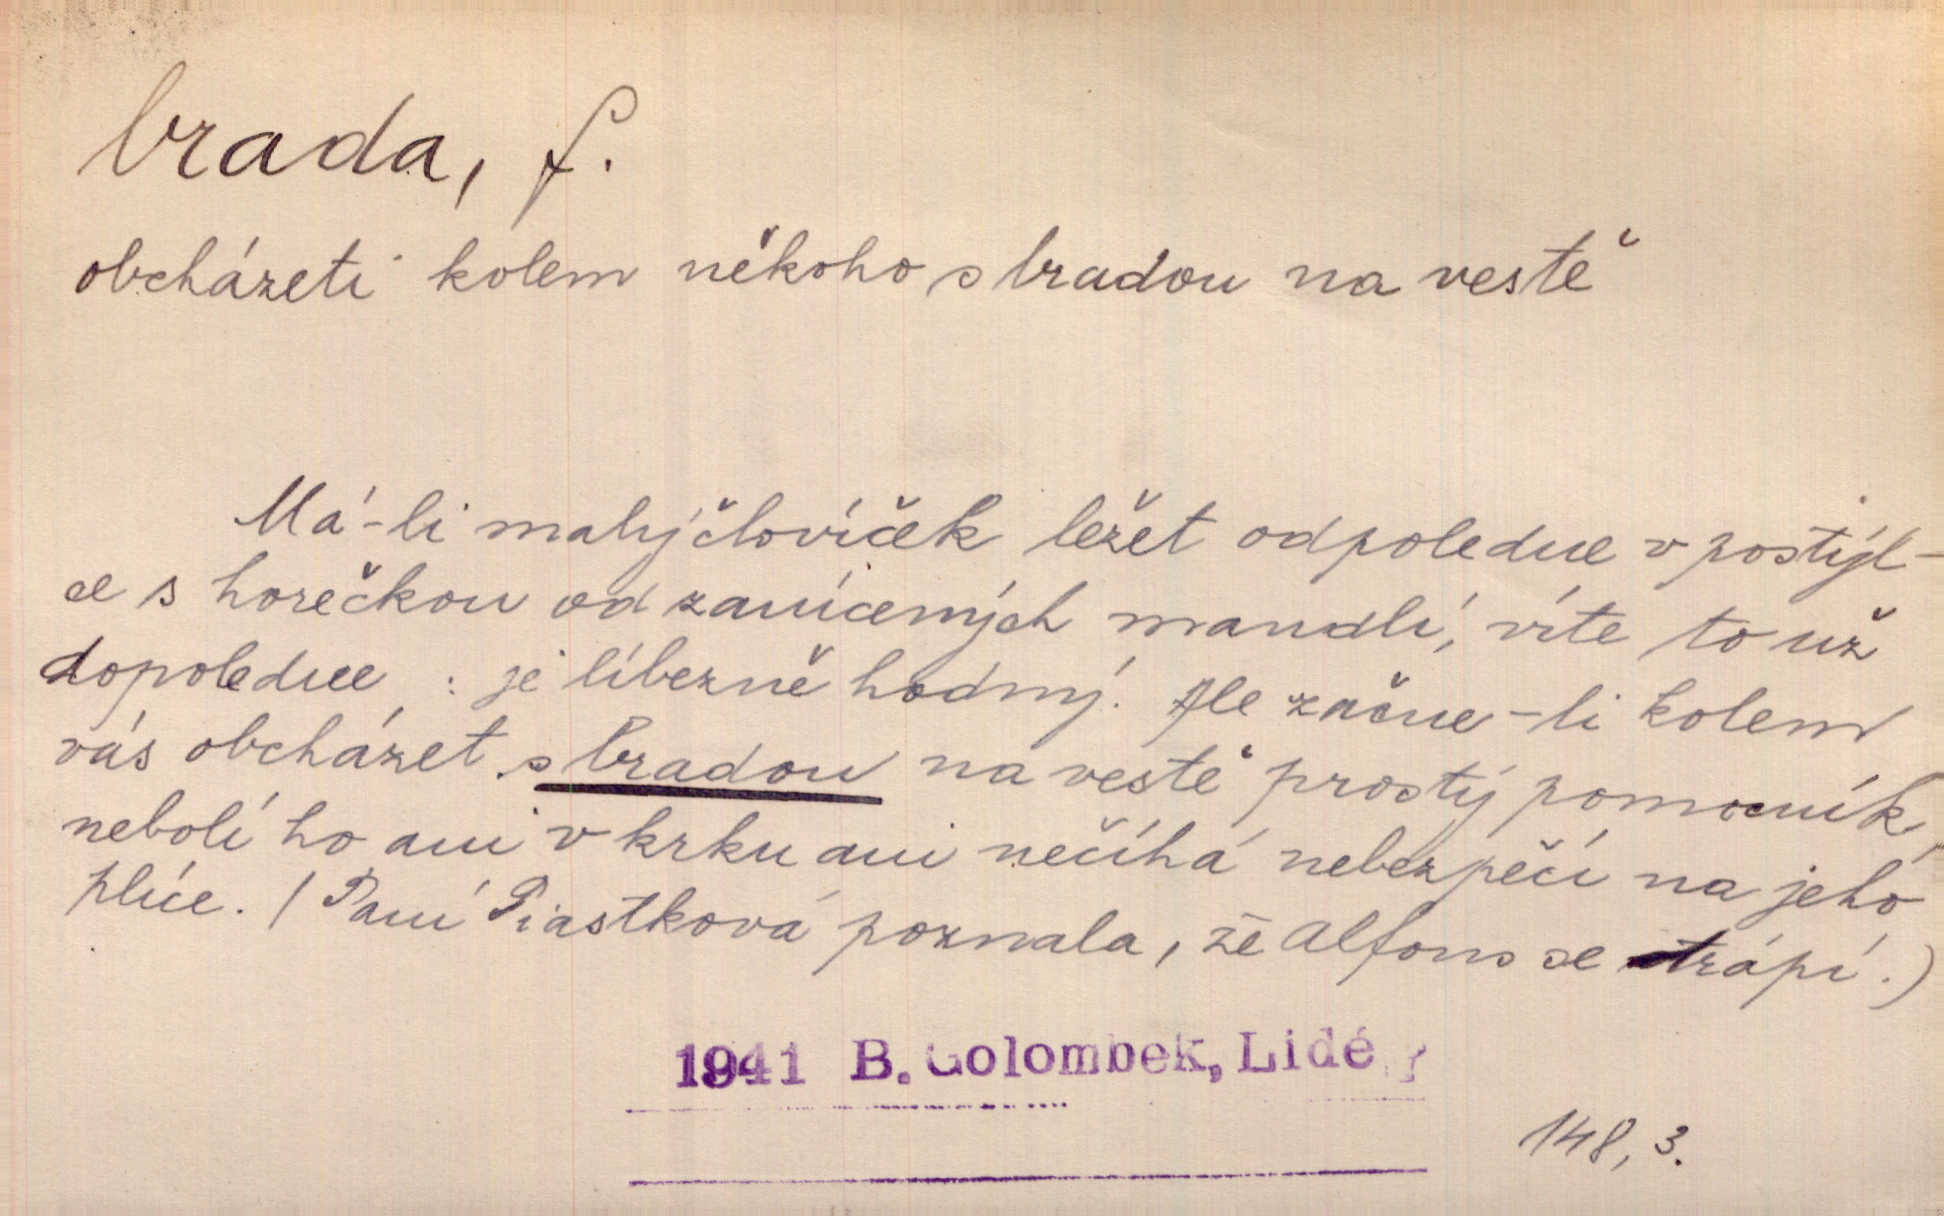 brada, f.
obcházeti kolem někoho s bradou na vestě
Má-li malý človíček ležet odpoledne v postýl-
ce s horečkou od zanícených mandlí, víte to už
dopoledne : je líbezně hodný. Ale začne-li kolem
vás obcházet s bradou na vestě prostý pomocník,
nebolí ho ani v krku ani nečíhá nebezpečí na jeho
plíce. (Paní Piastková poznala, že Alfons se trápí.)
1941 B. Golombek, Lidé
148, 3.